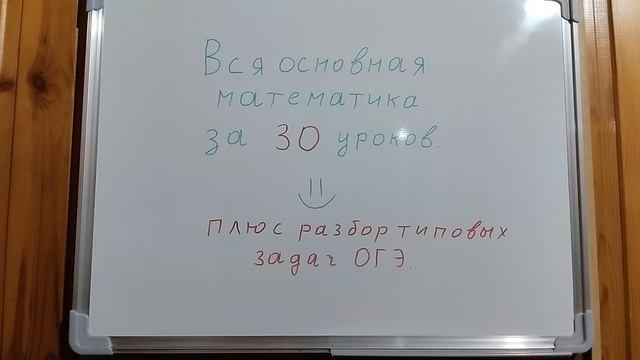 Вся основная
математика
за 30 уроков.
Плюс разбор типовых
задач ОГЭ.